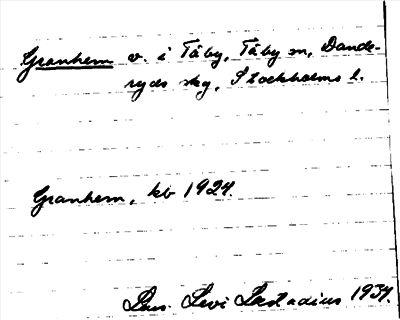 Granhem v. i Täby, Täby sn, Dande-
ryds skg, Stockholms l.
Granhem, kb 1924.
Lars Levi Læstadius 1937.